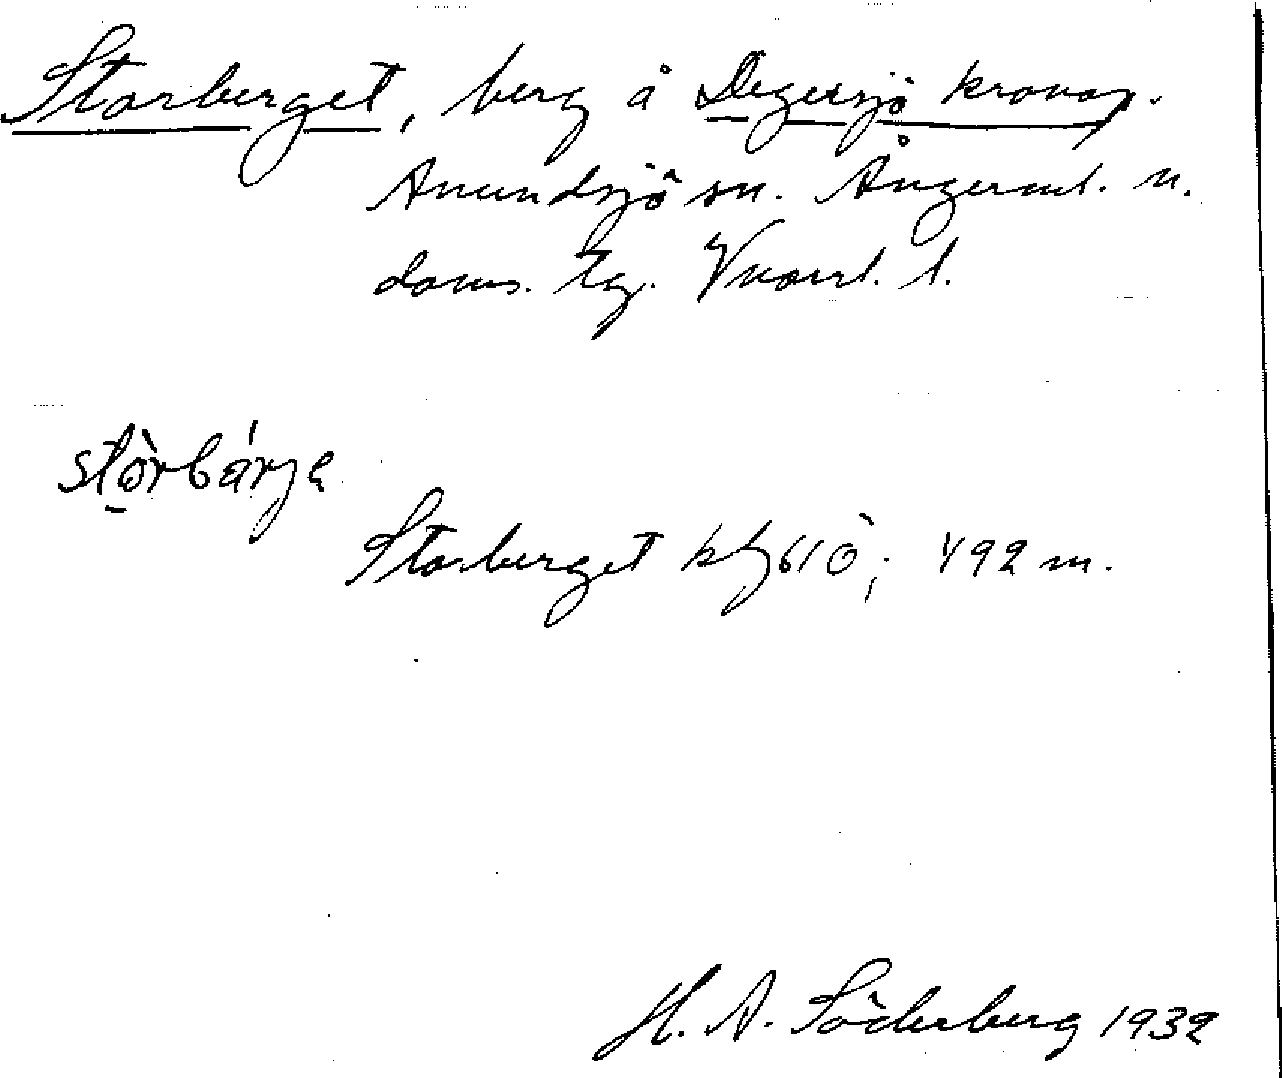 Storberget, berg å Degersjö kronop.
Anundsjö sn. Ångerml. n.
doms. tg. Vnorrl. l.
stòrbárje
Storberget kbl 61 Ö; 492 m.
H. A. Söderberg 1932